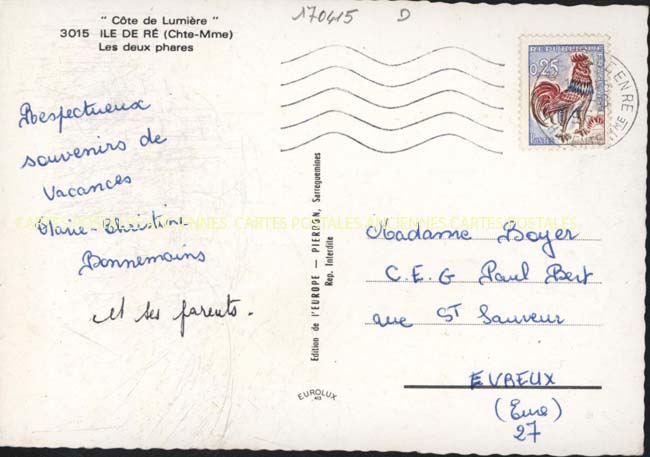 " Côte de Lumière "
3015 ILE DE RÉ (Chte-Mme)
Les deux phares
170415 D
REPUBLIQUE
0,25
EN RE
Respectueux
souvenirs de
Vacances
Marie-Christine
Bonnemains
et ses parents.
CARTES POSTALES ANCIENNES CARTES POSTALES ANCIENNES CARTES POSTALES
Edition de l'EUROPE — PIERRON, Sarreguemines
Rep. Interdite
EUROLUX
Madame Boyer
C.E.G Paul Bert
rue St Sauveur
EVREUX
(Eure)
27